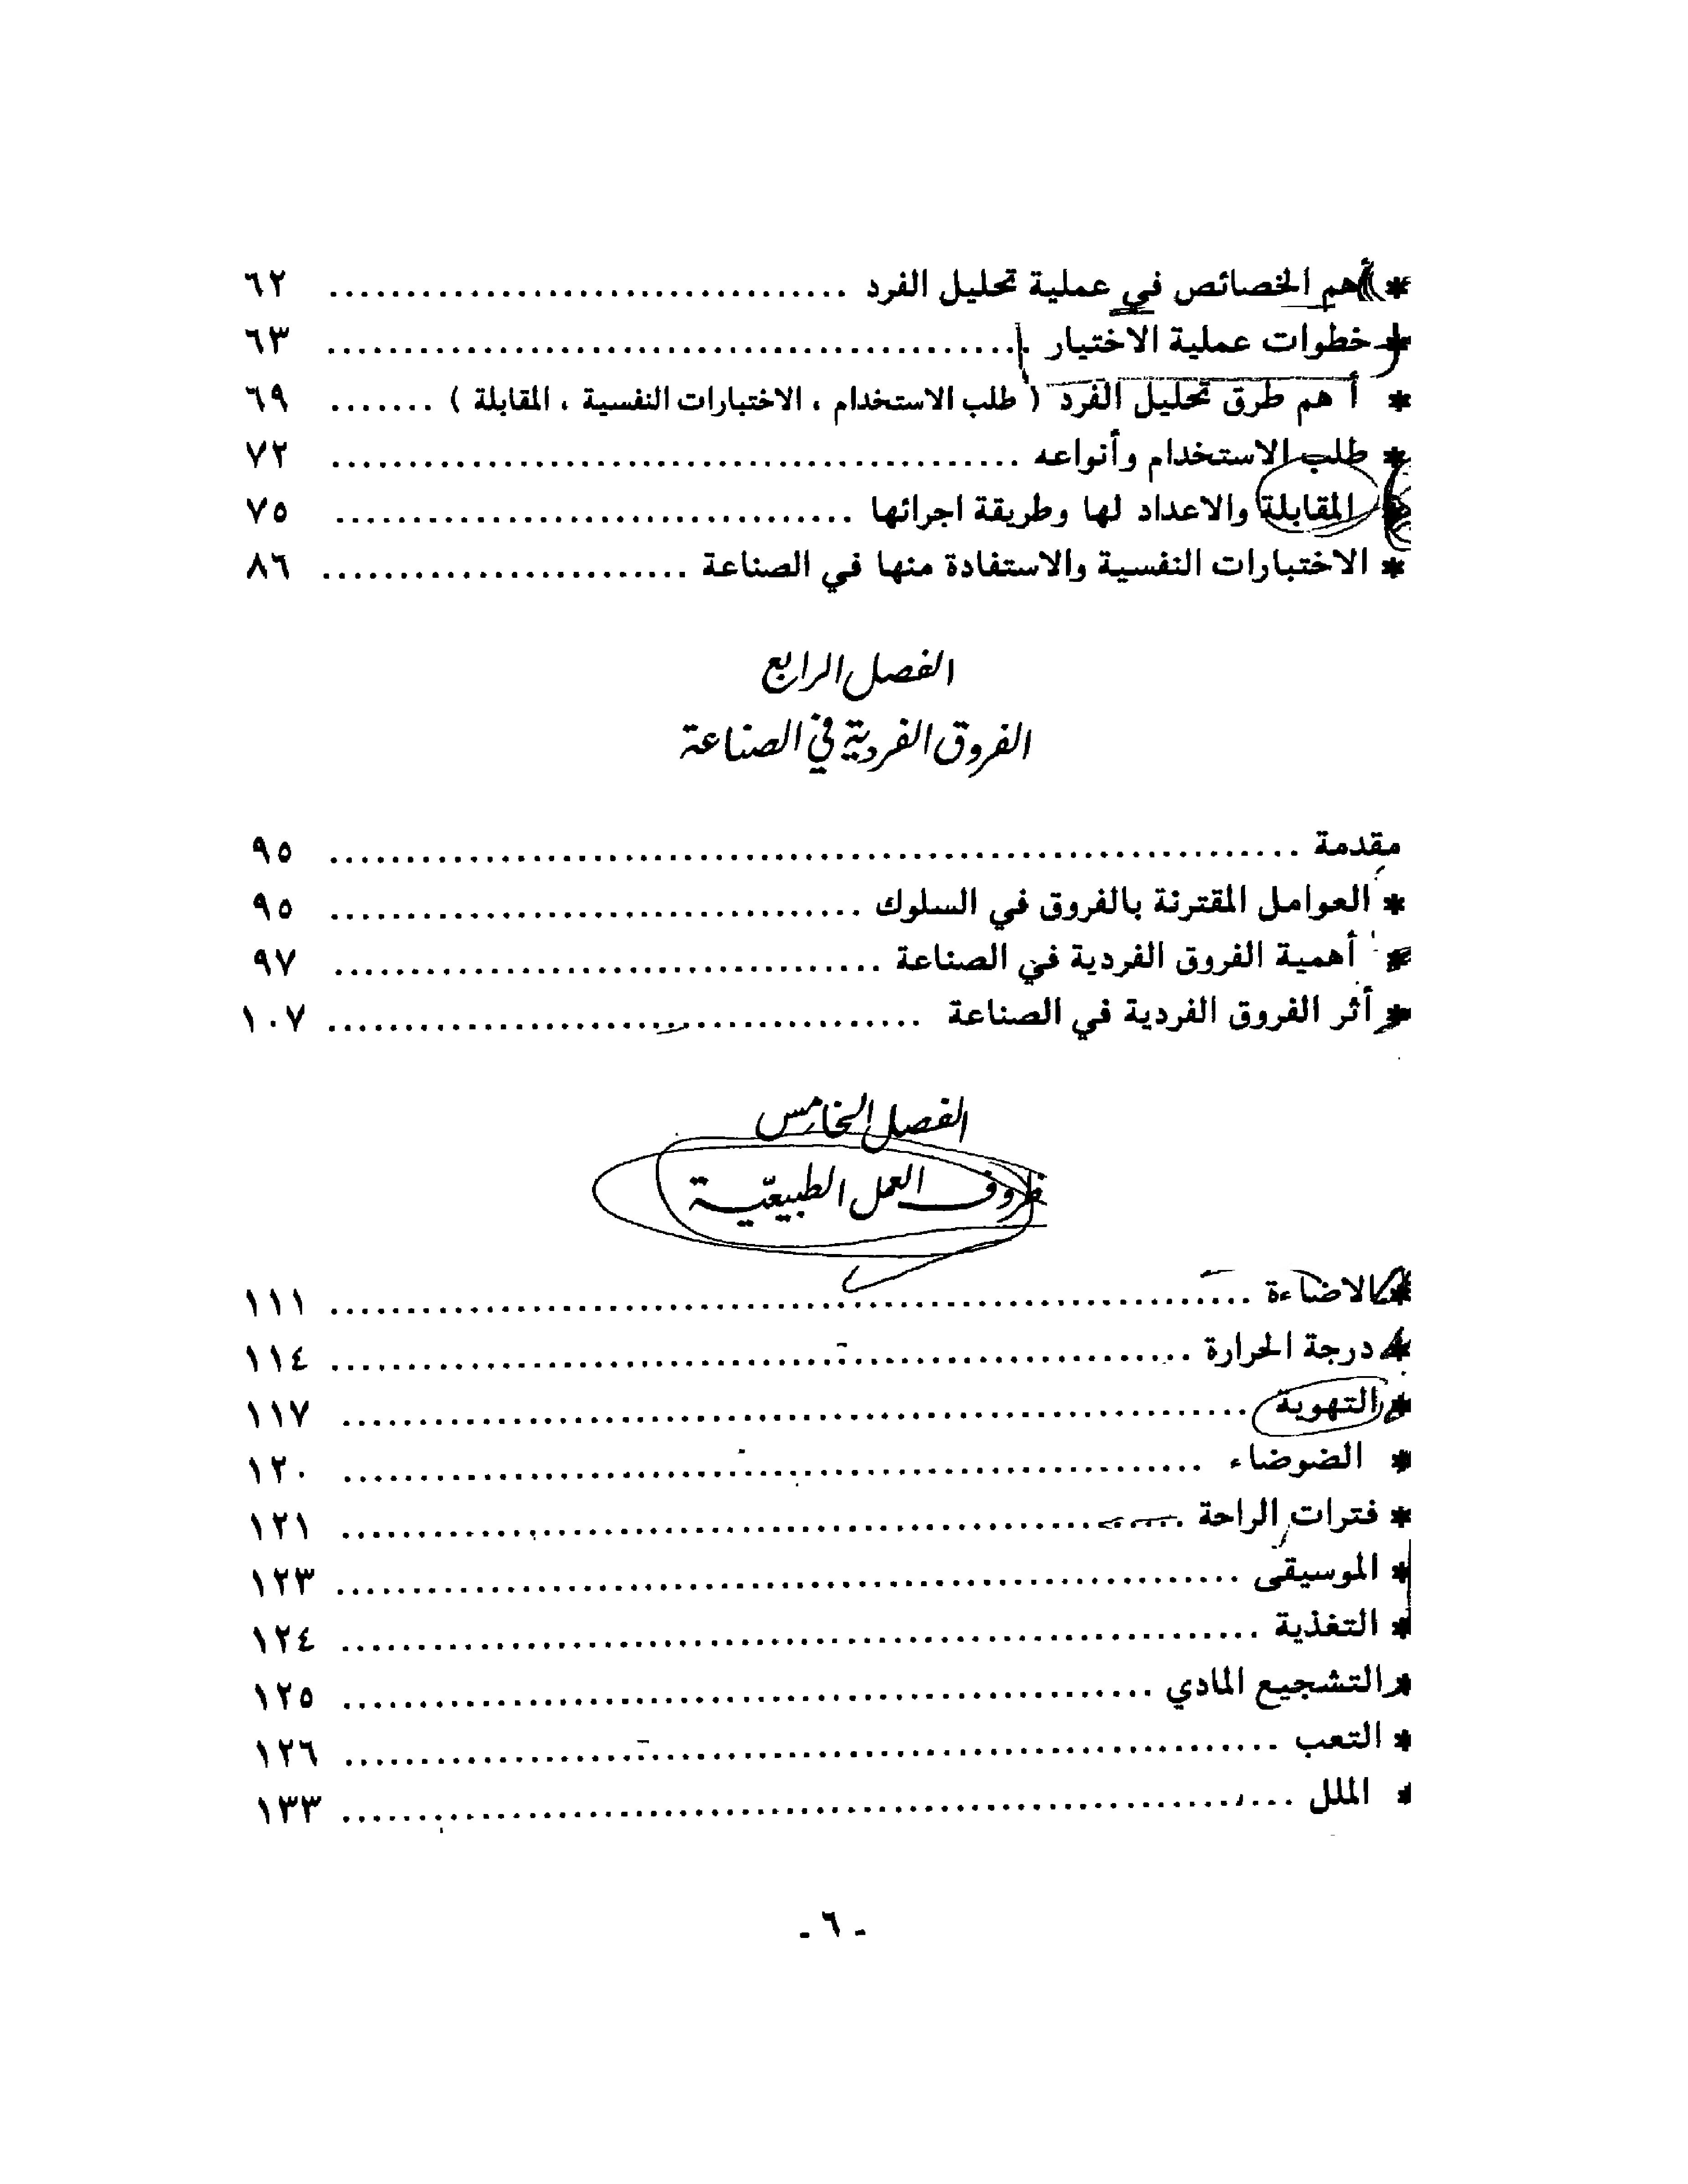 * أهم الخصائص في عملية تحليل الفرد .................................. ٦٢
* خطوات عملية الاختيار ............................................. ٦٣
* أهم طرق تحليل الفرد ( طلب الاستخدام ، الاختبارات النفسية ، المقابلة ) ....... ٦٩
* طلب الاستخدام وأنواعه ............................................. ٧٢
* المقابلة والاعداد لها وطريقة اجرائها .................................. ٧٥
* الاختبارات النفسية والاستفادة منها في الصناعة ........................ ٨٦
الفصل الرابع
الفروق الفردية في الصناعة
مقدمة ............................................................... ٩٥
* العوامل المقترنة بالفروق في السلوك .................................. ٩٥
* أهمية الفروق الفردية في الصناعة .................................... ٩٧
* أثر الفروق الفردية في الصناعة ....................................... ١٠٧
الفصل الخامس
ظروف العمل الطبيعية
* الاضاءة ............................................................ ١١١
* درجة الحرارة ........................................................ ١١٤
* التهوية ............................................................ ١١٧
* الضوضاء ........................................................ ١٢٠
* فترات الراحة ....................................................... ١٢١
* الموسيقى ........................................................... ١٢٣
* التغذية ............................................................ ١٢٤
* التشجيع المادي ..................................................... ١٢٥
* التعب ............................................................. ١٢٦
* الملل .............................................................. ١٣٣
- ٦ -